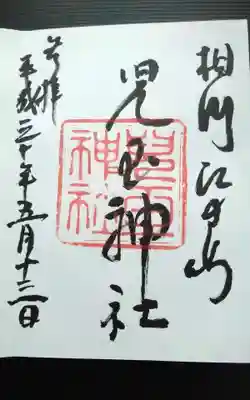 相州江ノ島
児玉神社
奉拝
平成三十年五月十三日
児玉神社